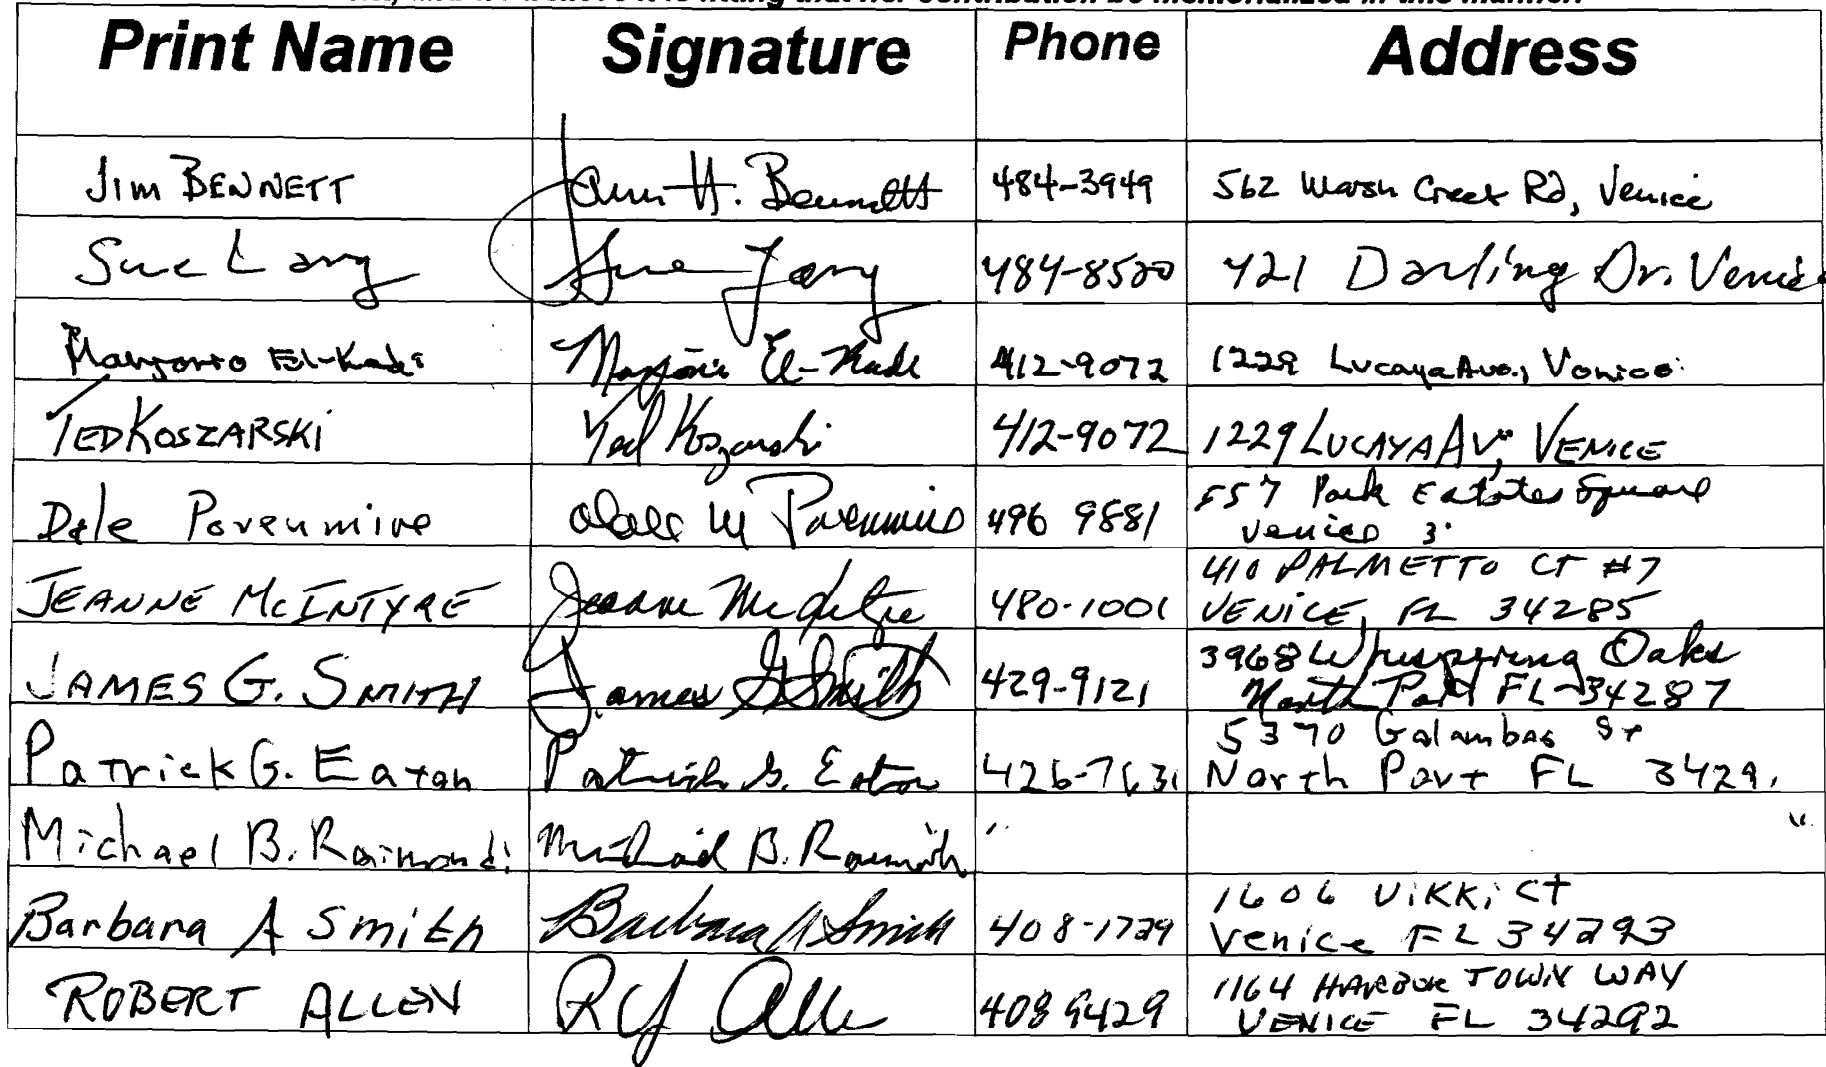 it is fitting that her contribution be memorialized in this manner.
Print Name Signature Phone Address
Jim BENNETT James H. Bennett 484-3949 562 Marsh Creek Rd, Venice
Sue Lang Sue Lang 484-8520 421 Darling Dr. Venice
Marjorie El-Kadi Marjorie El-Kadi 412-9072 1229 Lucaya Ave., Venice
TED KOSZARSKI Ted Koszarski 412-9072 1229 LUCAYA AV, VENICE
Dale Parenmire Dale M 496 9881 557 Park Estates Square
Venice 3
JEANNE MCINTYRE Jeanne McIntyre 480-1001 410 PALMETTO CT #7
VENICE, FL 34285
JAMES G. SMITH James G Smith 429-9121 3968 Whispering Oaks
North Port FL 34287
Patrick G. Eaton Patrick G. Eaton 426-7631 5370 Galambas St
North Port FL 3429
Michael B. Raimondi Michael B. Raimondi " "
Barbara A Smith Barbara A Smith 408-1729 1606 Vikki Ct
Venice FL 34293
ROBERT ALLEN 408 9429 1164 HARBOR TOWN WAY
VENICE FL 34292